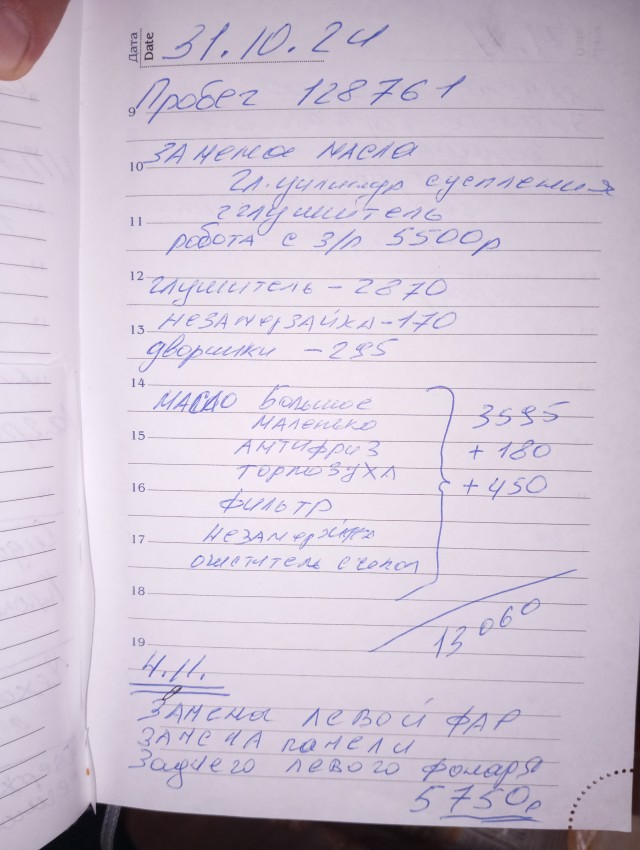 Дата
Date 31.10.24
9 Пробег 128761
10 Замена масла
гл. цилиндр сцепления
11 глушитель
работа с з/п 5500р
12
глушитель - 2870
13 незамерзайка - 170
дворники - 295
14
масло большое 3595
15 маленько
антифриз + 180
16 тормозуха + 450
фильтр
17 незамерзайка
очиститель стекол
18
13 060
19
4.11.
Замена левой фар
Замена панели
Заднего левого фонаря
5750р